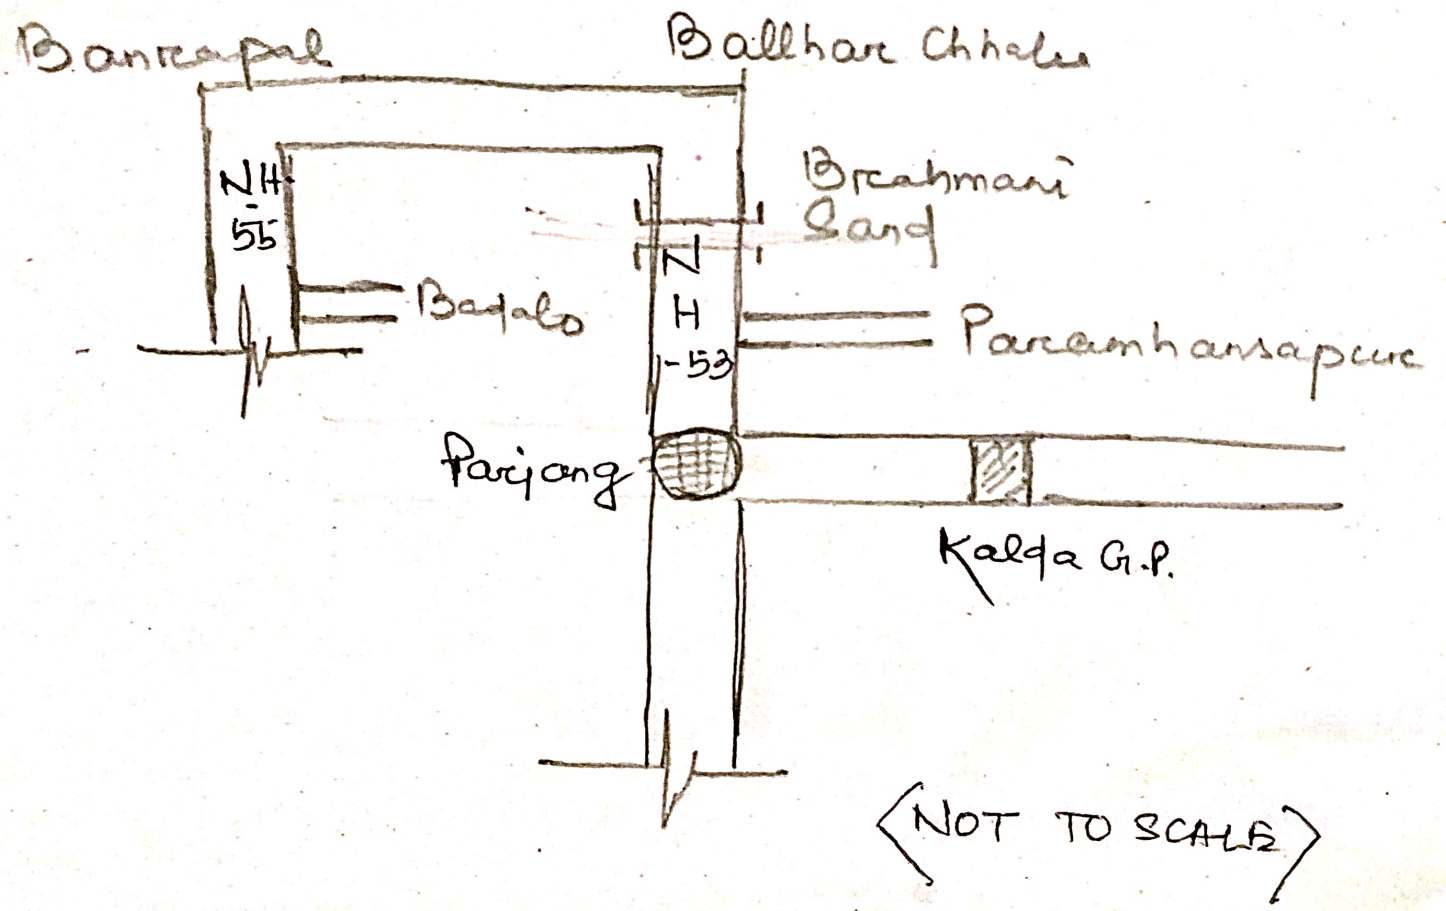 Banrapal
Ballhar
NH
-
55
Brahmani
Sand
N
H
-53
Badalo
Paramhansapur
Parjang
Kalda G.P.
(NOT TO SCALE)